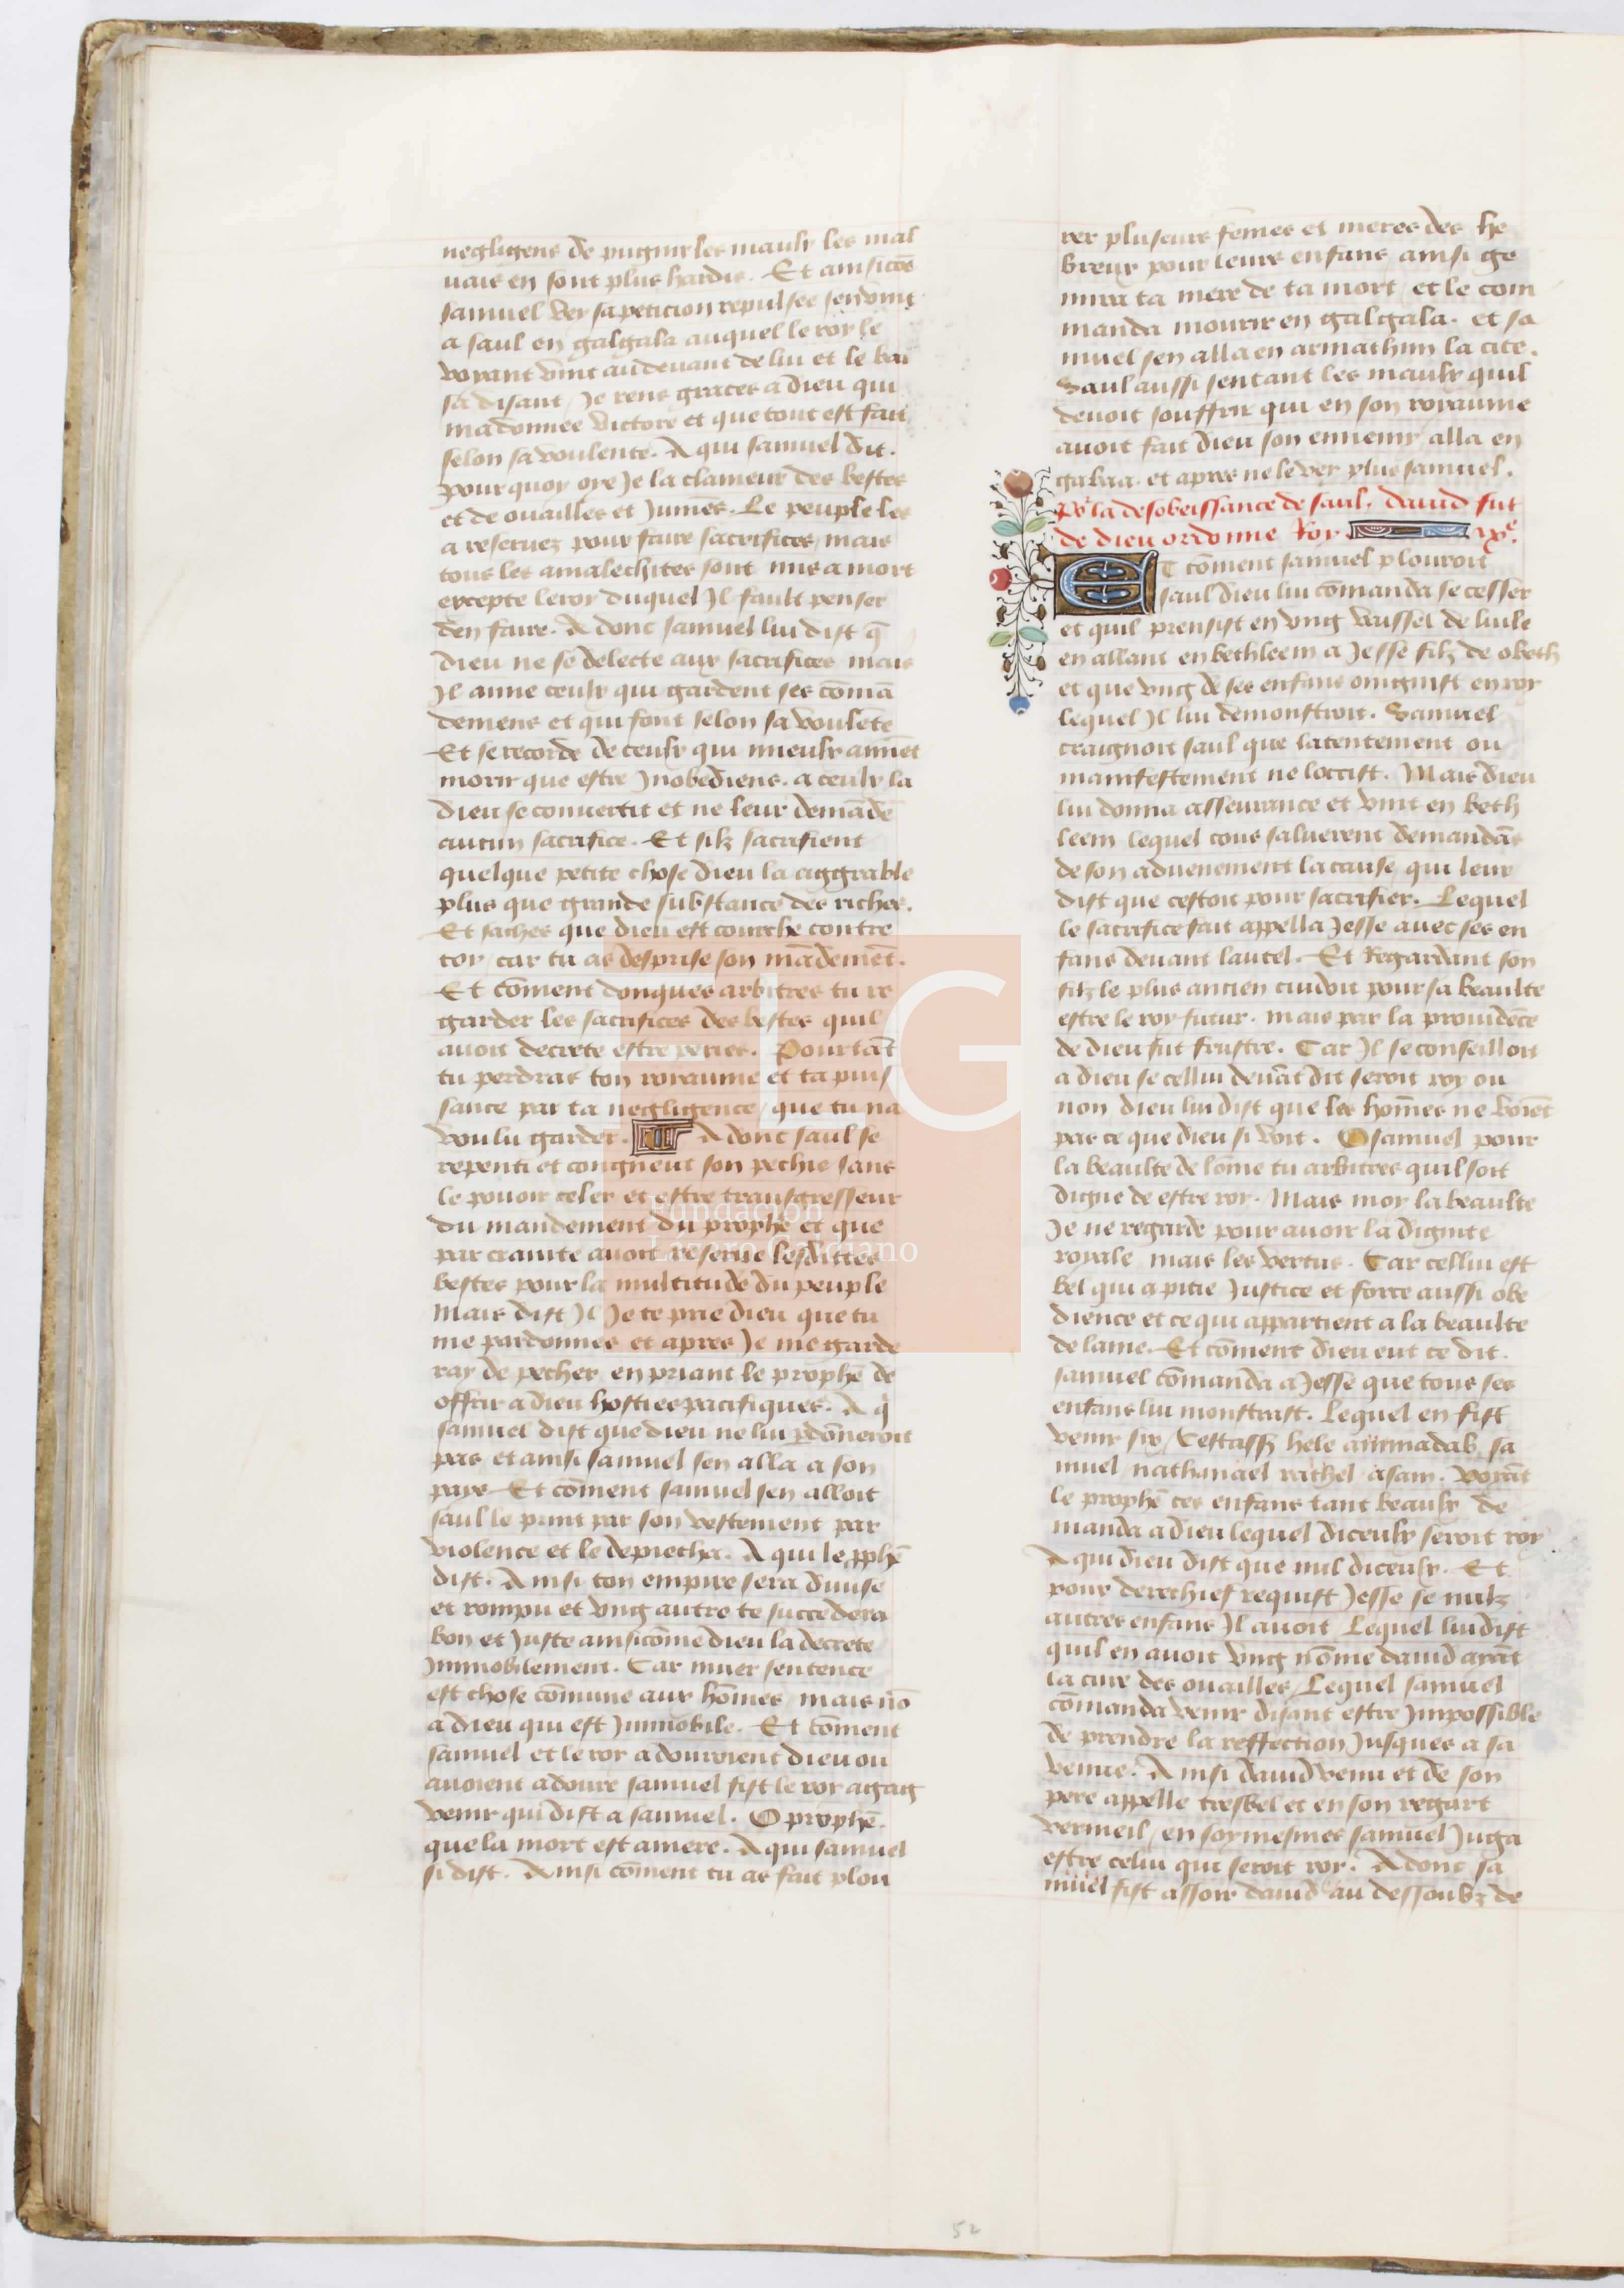 negligens de pugnir les maulx les mal
uais en sont plus hardis. Et ainsi cōe
samuel vey sa peticion repulsee sen vint
a saul en galgala auquel le roy le
voyant vint au deuant de lui et le bai
sa disant / Je rens graces a dieu qui
ma donnee victore et que tout est fait
selon sa voulente. A qui samuel dit.
pour quoy oye Je la clameur des bestes
et de ouailles et Jumēs. Le peuple les
a reseruez pour faire sacrifices / mais
tous les amalechites sont mis a mort
excepte le roy duquel Il fault penser
den faire. A donc samuel lui dist q̄
dieu ne se delecte aux sacrifices mais
Il aime ceulx qui gardent ses cōmā
demens et qui font selon sa voulēte
Et se recorde de ceulx qui mieulx aimēt
morir que estre Inobediens. a ceulx la
dieu se conuertit et ne leur demāde
aucun sacrifice. Et silz sacrifient
quelque petite chose dieu la aggrable
plus que grande substance des riches.
Et saches que dieu est courche contre
toy / car tu as desprise son mādemēt.
Et cōment donques arbitres tu re
garder les sacrifices des bestes quil
auoit decrete estre peries. Pourtāt
tu perdras ton royaume et ta puis
sance par ta negligence / que tu na
voulu garder. A donc saul se
repenti et congneut son pechie sans
le pouoir celer et estre transgresseur
du mandement du prophē et que
par crainte auoit reserue lesdittes
bestes pour la multitude du peuple
Mais dist Il Je te prie dieu que tu
me pardonnes et apres Je me garde
ray de pecher en priant le prophē de
offrir a dieu hosties pacifiques. A q̄
samuel dist que dieu ne lui p̄dōneroit
pas et ainsi samuel sen alla a son
pays Et cōment samuel sen alloit
saul le print par son vestement par
violence et le depiecha. A qui le pphē
dist. Ainsi ton empire sera diuise
et rompu et vng autre te succedera
bon et Juste ainsi cōme dieu la decrete
Immobilement. Car muer sentence
est chose cōmune aux hōmes / mais nō
a dieu qui est Immobile. Et cōment
samuel et le roy adouroient dieu ou
auoient adoure samuel fist le roy agag
venir qui dist a samuel. O prophē
que la mort est amere. A qui samuel
si dist. Ainsi cōment tu as fait plou
rer pluseurs fēmes et meres des he
breux pour leurs enfans ainsi ge
mira ta mere de ta mort / et le com
manda mourir en galgala. et sa
muel sen alla en armathim la cite.
Saul aussi sentant les maulx quil
deuoit souffrir qui en son royaume
auoit fait dieu son ennemy alla en
gabaa. et apres ne le vey plus samuel.
Po la desobeissance de saul. dauid fut
de dieu ordonne Roy ixe.
Et cōment samuel plouroit
saul dieu lui cōmanda se cesser
et quil prensist en vng vaissel de luile
en allant en bethleem a Jesse filz de obeth
et que vng de ses enfans oingnist en roy
lequel Il lui demonstroit. Samuel
craignoit saul que latentement ou
manifestement ne loccist. Mais dieu
lui donna asseurance et vint en beth
leem lequel tous saluerent demandās
de son aduenement la cause qui leur
dist que cestoit pour sacrifier. Lequel
le sacrifice fait appella Jesse auec ses en
fans deuant lautel. Et Regardant son
filz le plus ancien cuidoit pour sa beaulte
estre le roy futur. mais par la prouidēce
de dieu fut frustre. Car Il se conseilloit
a dieu se cellui deuāt dit seroit roy ou
non / dieu lui dist que les hōmes ne voiēt
par ce que dieu si voit. O samuel pour
la beaulte de lōme tu arbitres quil soit
digne de estre roy. Mais moy la beaulte
Je ne regarde pour auoir la dignite
royale mais les vertus. Car cellui est
bel qui a pitie Justice et force aussi obe
dience et ce qui appartient a la beaulte
de lame. Et cōment dieu eut ce dit.
samuel cōmanda a Jesse que tous ses
enfans lui monstrast. Lequel en fist
venir six / hele aminadab sa
muel / nathanael rathel asam. Voyāt
le prophē ces enfans tant beaulx de
manda a dieu lequel diceulx seroit roy
A qui dieu dist que nul diceulx. Et
pour derechief requist Jesse se nulz
autres enfans Il auoit Lequel lui dist
quil en auoit vng nōme dauid ayāt
la cure des ouailles / Lequel samuel
cōmanda venir disant estre Impossible
de prendre la reffection Jusques a sa
venue. Ainsi dauid venu et de son
pere appelle tresbel et en son regart
vermeil / en soymesmes samuel Juga
estre celui qui seroit roy. Adonc sa
muel fist assoir dauid au dessoubz de
FLG
Fundación
Lázaro Galdiano
52